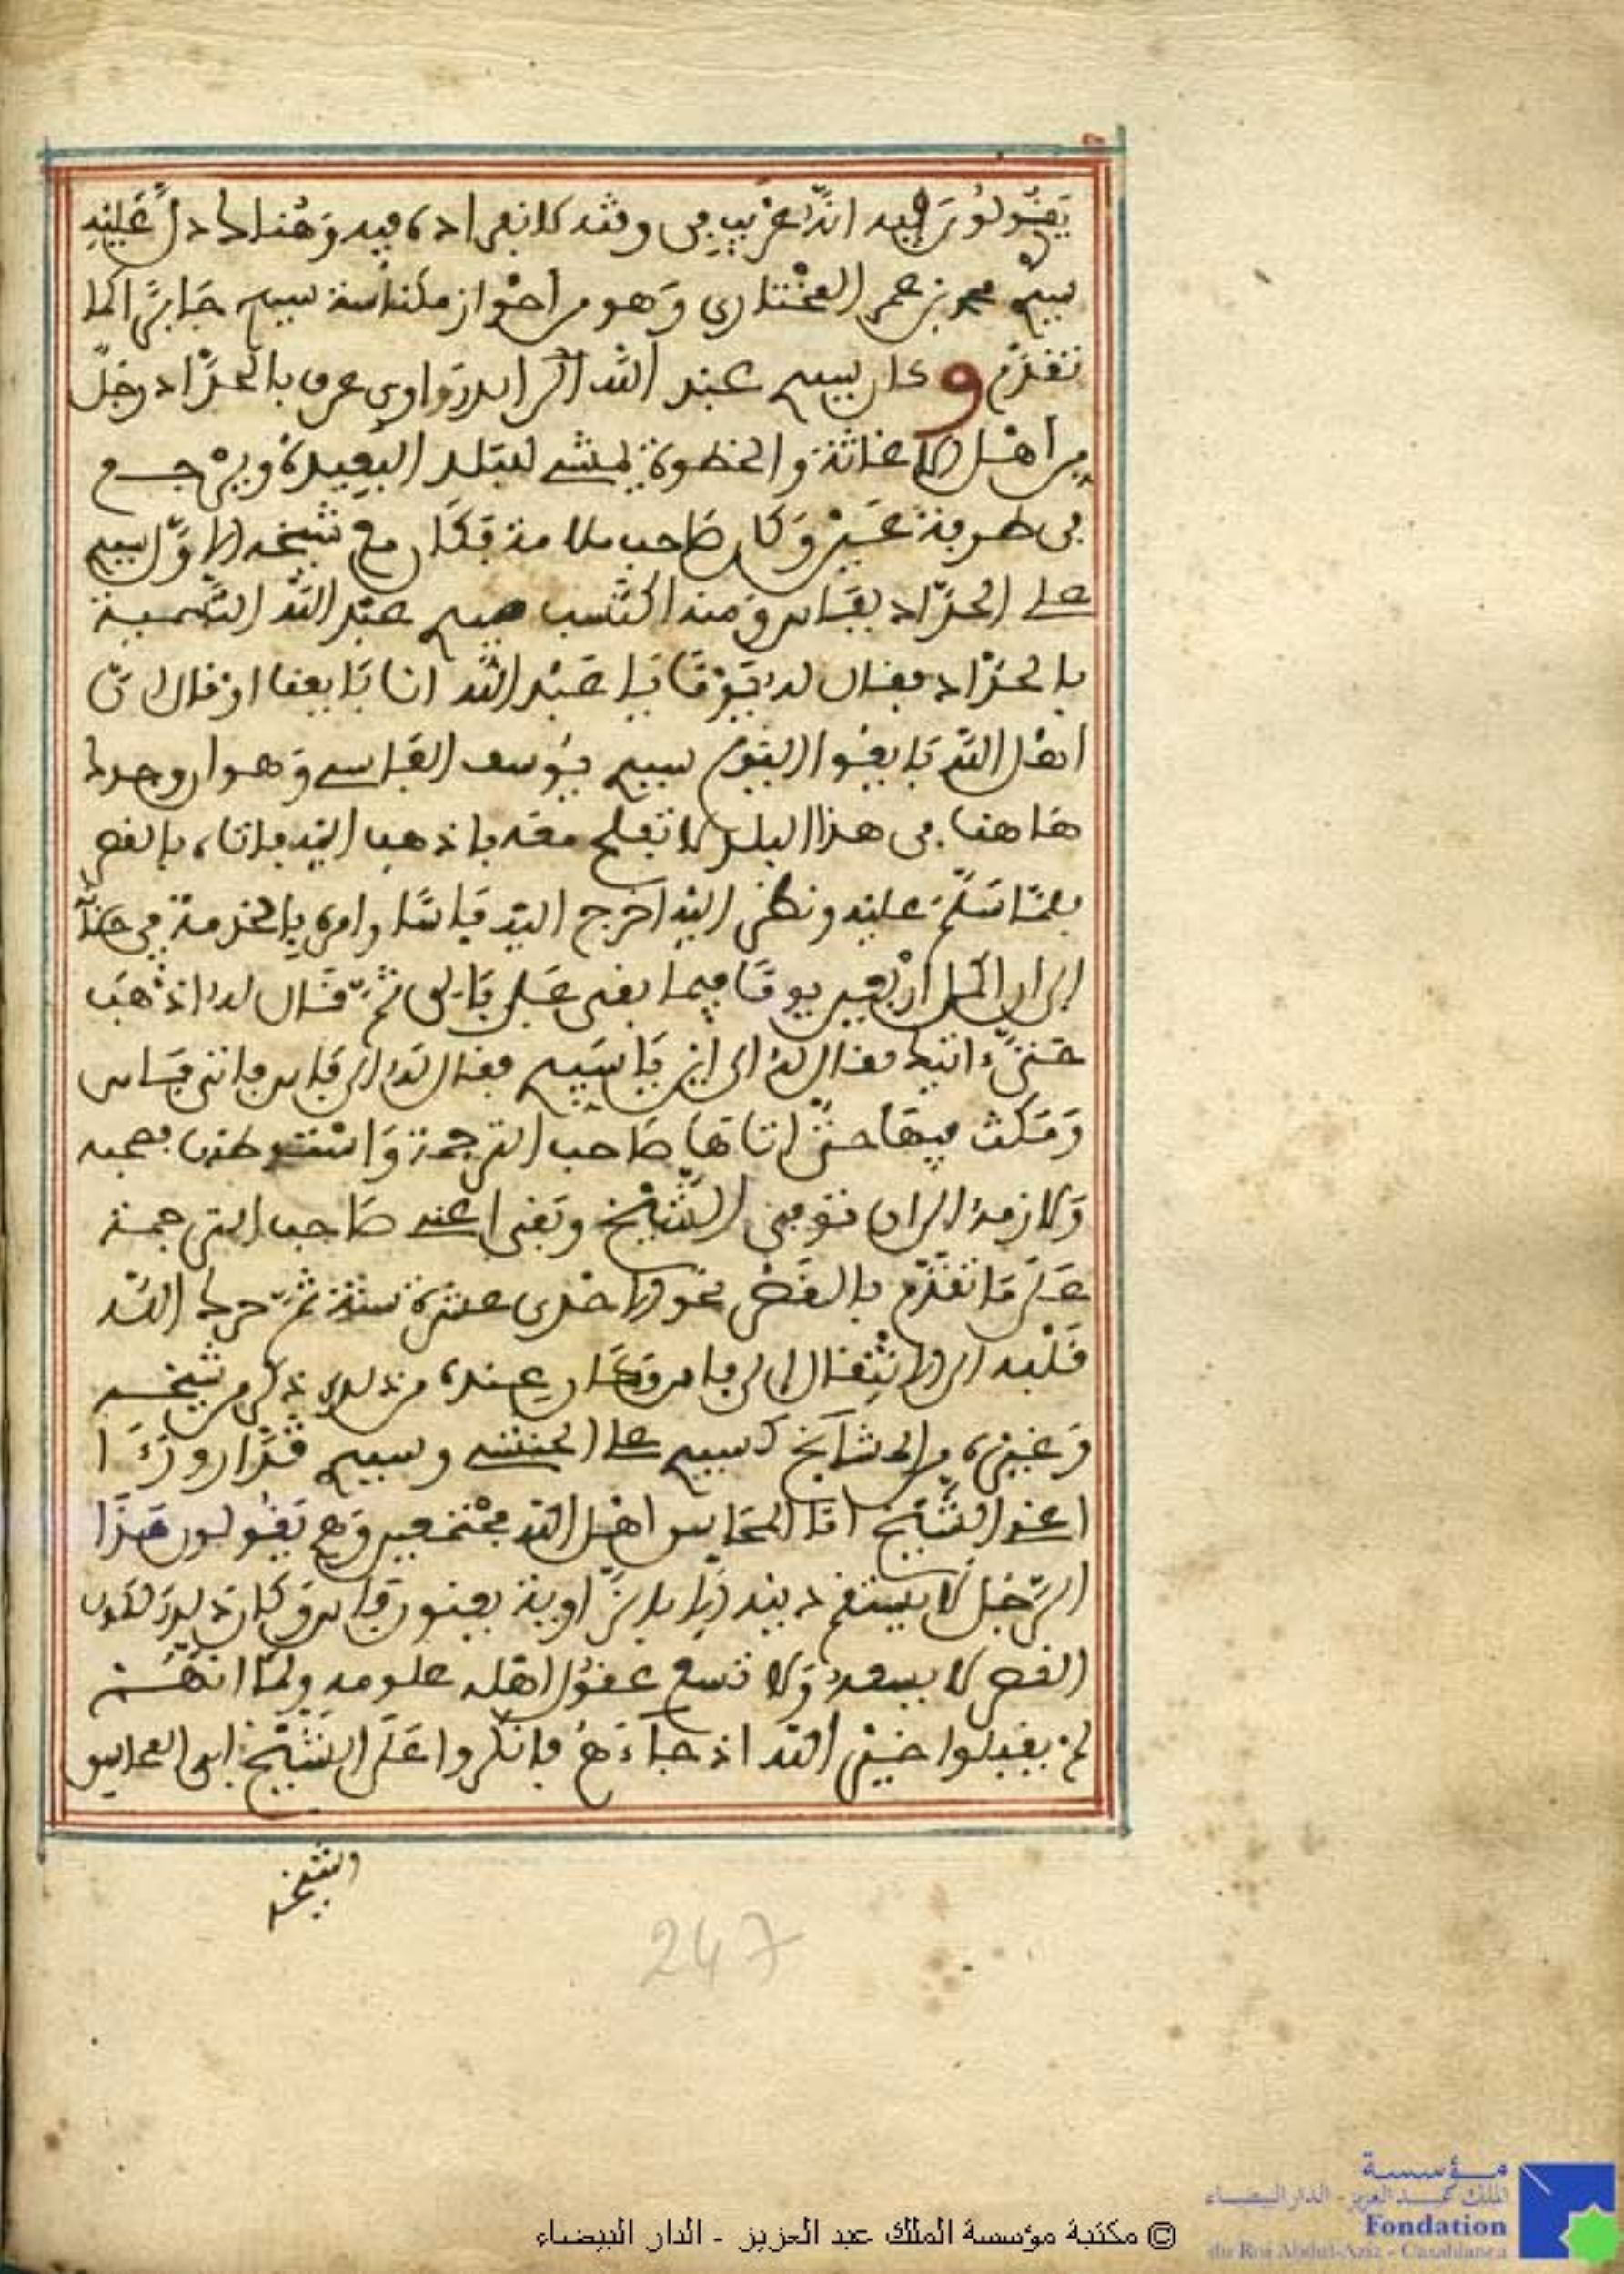 يَقُولُونَ فيه انّهُ غريب في وقته لانفراده فيه وَهُناك دلّ عَلَيْهِ
سيدي محمد بن عمر المختاري وَهو من احْواز مكناسة سيدي جَابرًا كما
تقدّم وكان سيدي عبد اللّه الدراوي عرف بالحدّاد رجلً
من أهْل الاغاثة والخطوة يمشي للبَلد البَعِيدة ويرْجع
في طرفة عَين وَكان صَاحب ملامة فكَان مع شيخه الاوّل سيدي
علي الحدّاد بفَاس وَمنه اكتسب سيدي عبد اللّه التسمية
بالحدّاد فقال له يَوْمًا يَا عَبْد اللّه انا بَايعنا اوْ قال لي
اهْل اللّه بَايعُوا اليَوْم سيدي يُوسف الفَاسي وَهوا روجدك
هَاهنا في هذا البلد لا تفلح معه فاذهب اليه فاتاه بالقصر
فلمّا سَلّمَ عليه ونظر اليه اخْرج اليه فَاسًا وامره بالخدمة في جنان
الى ان اكمل ارْبَعين يومًا فيما بقي عَلى بَالي ثمّ قَال له اذْهَب
حَتّى اتيك فقال لهُ الى اين يَا سَيدي فقال لهُ الى فاس فاتى فَاس
وَمَكث فيهَا حتّى اتاهَا صَاحب الترجمة وَاسْتوطنها فصحبه
وَلازمهُ الى ان توفي الشّيْخ وبَقي اعني صَاحب الترجمة
عَلى مَا تقدّم بالقصْر نحو الاحْدى عشرة سنة ثمّ حرك اللّه
قَلْبه الى الانْتِقال الى فاس وَكان عِنده من ذلك ذكر من شيخه
وَغيره من المشَايخ كسيدي علي الحنشي وسيدي قدّار ورَءَا
اعني الشّيخ ابَا المحَاسن اهْل اللّه مجْتمعين وَهم يَقُولون هَذا
الرّجُل لا يستقم دينه الا بالزّاوية يعنون فاس وَكان ذلك لكون
القصر لا يسعهُ وَلا تسع عقُول اهْله علومه ولمّا انّهُمْ
لمْ يقبلوا خَيْر اللّه اذ جَاءَهُمْ فانكروا عَلى الشّيْخ ابي المحاسن
والشيخ
247
© مكتبة مؤسسة الملك عبد العزيز - الدار البيضاء
مؤسسة
الملك عبد العزيز - الدار البيضاء
Fondation
du Roi Abdul-Aziz - Casablanca